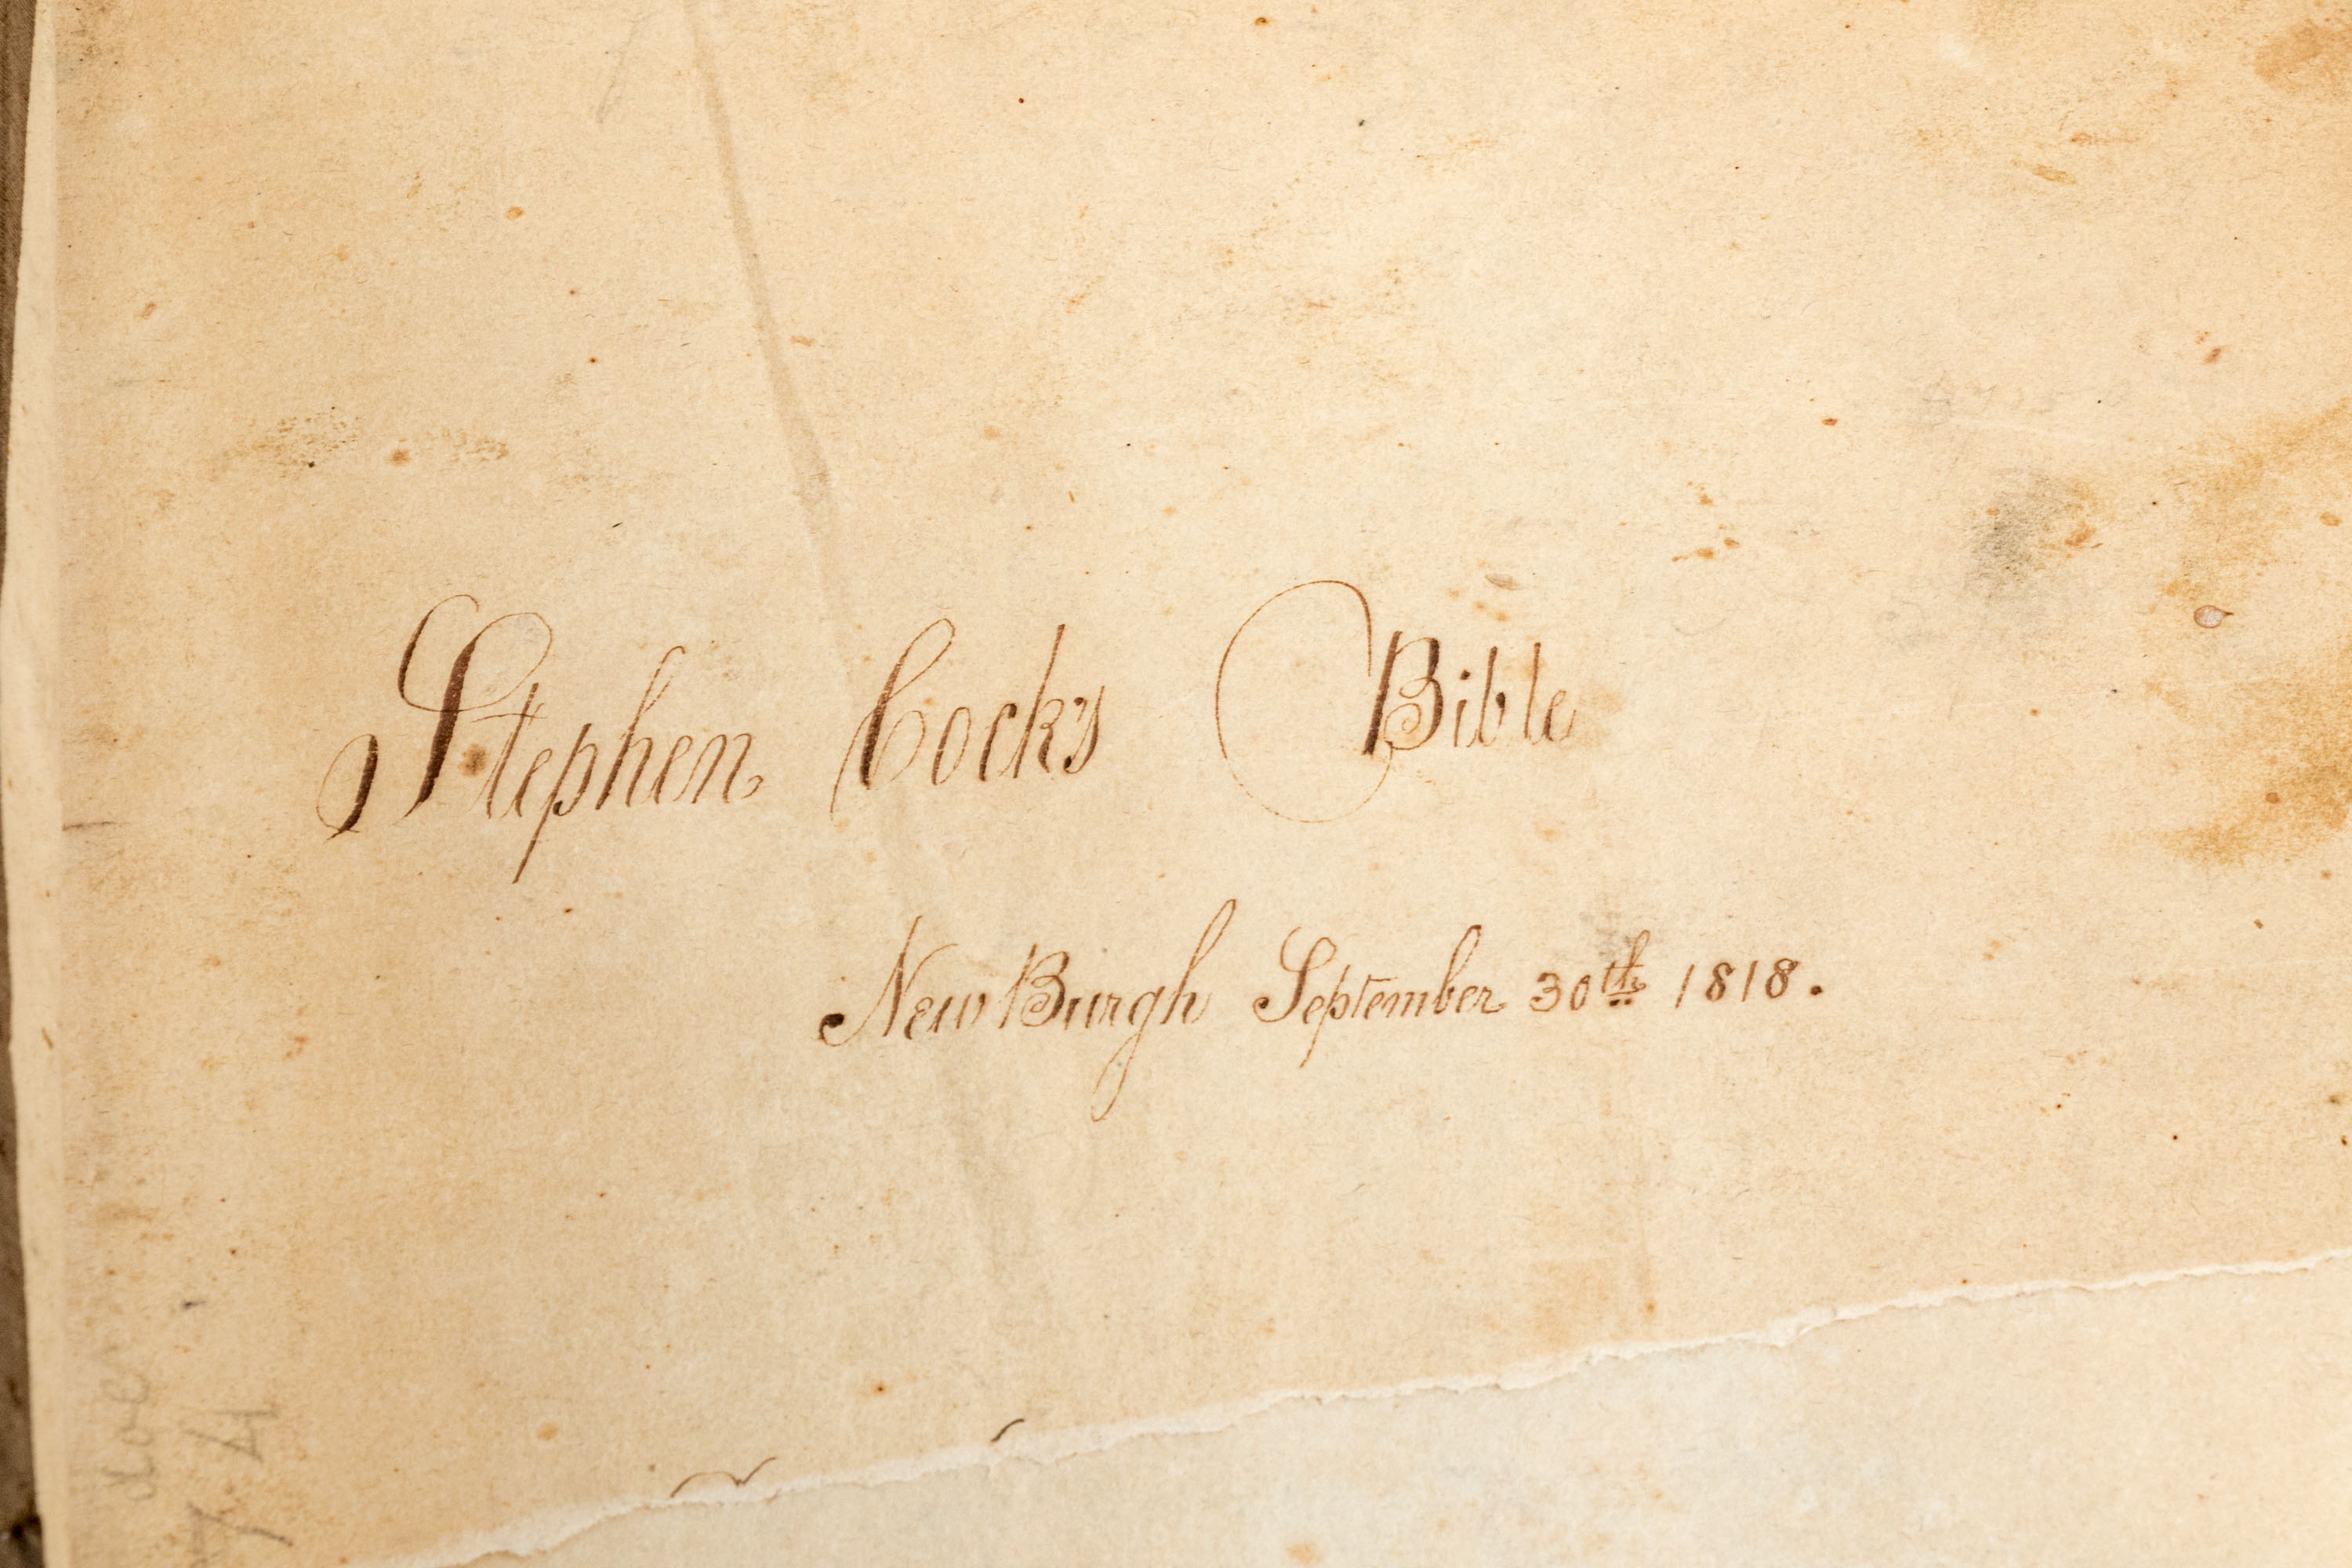 Stephen Cock's Bible
NewBurgh September 30th 1818.